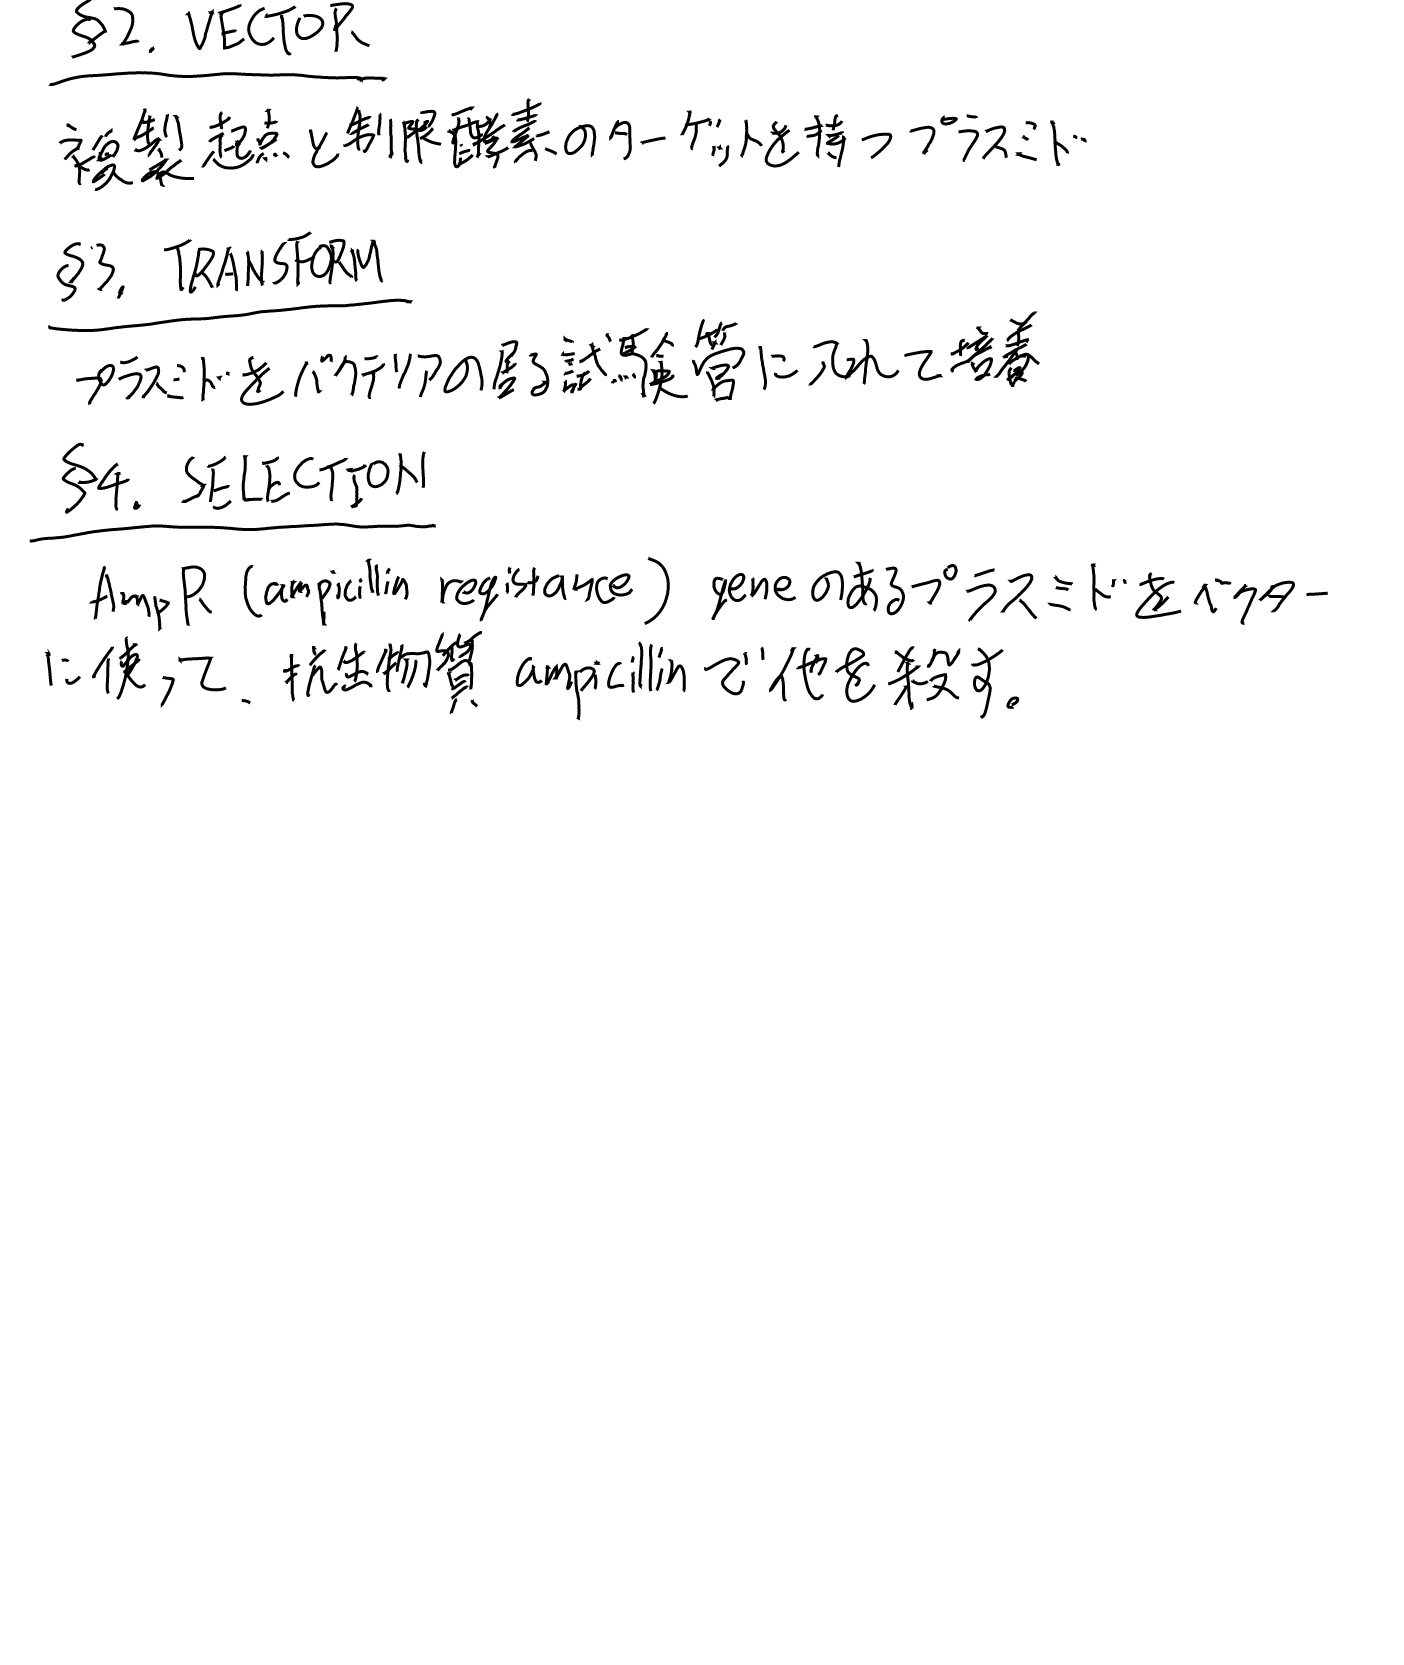 §2. VECTOR
複製起点と制限酵素のターゲットを持つプラスミド
§3. TRANSFORM
プラスミドをバクテリアの居る試験管に入れて培養
§4. SELECTION
AmpR (ampicillin registance) geneのあるプラスミドをベクター
に使って、抗生物質 ampicillinで他を殺す。